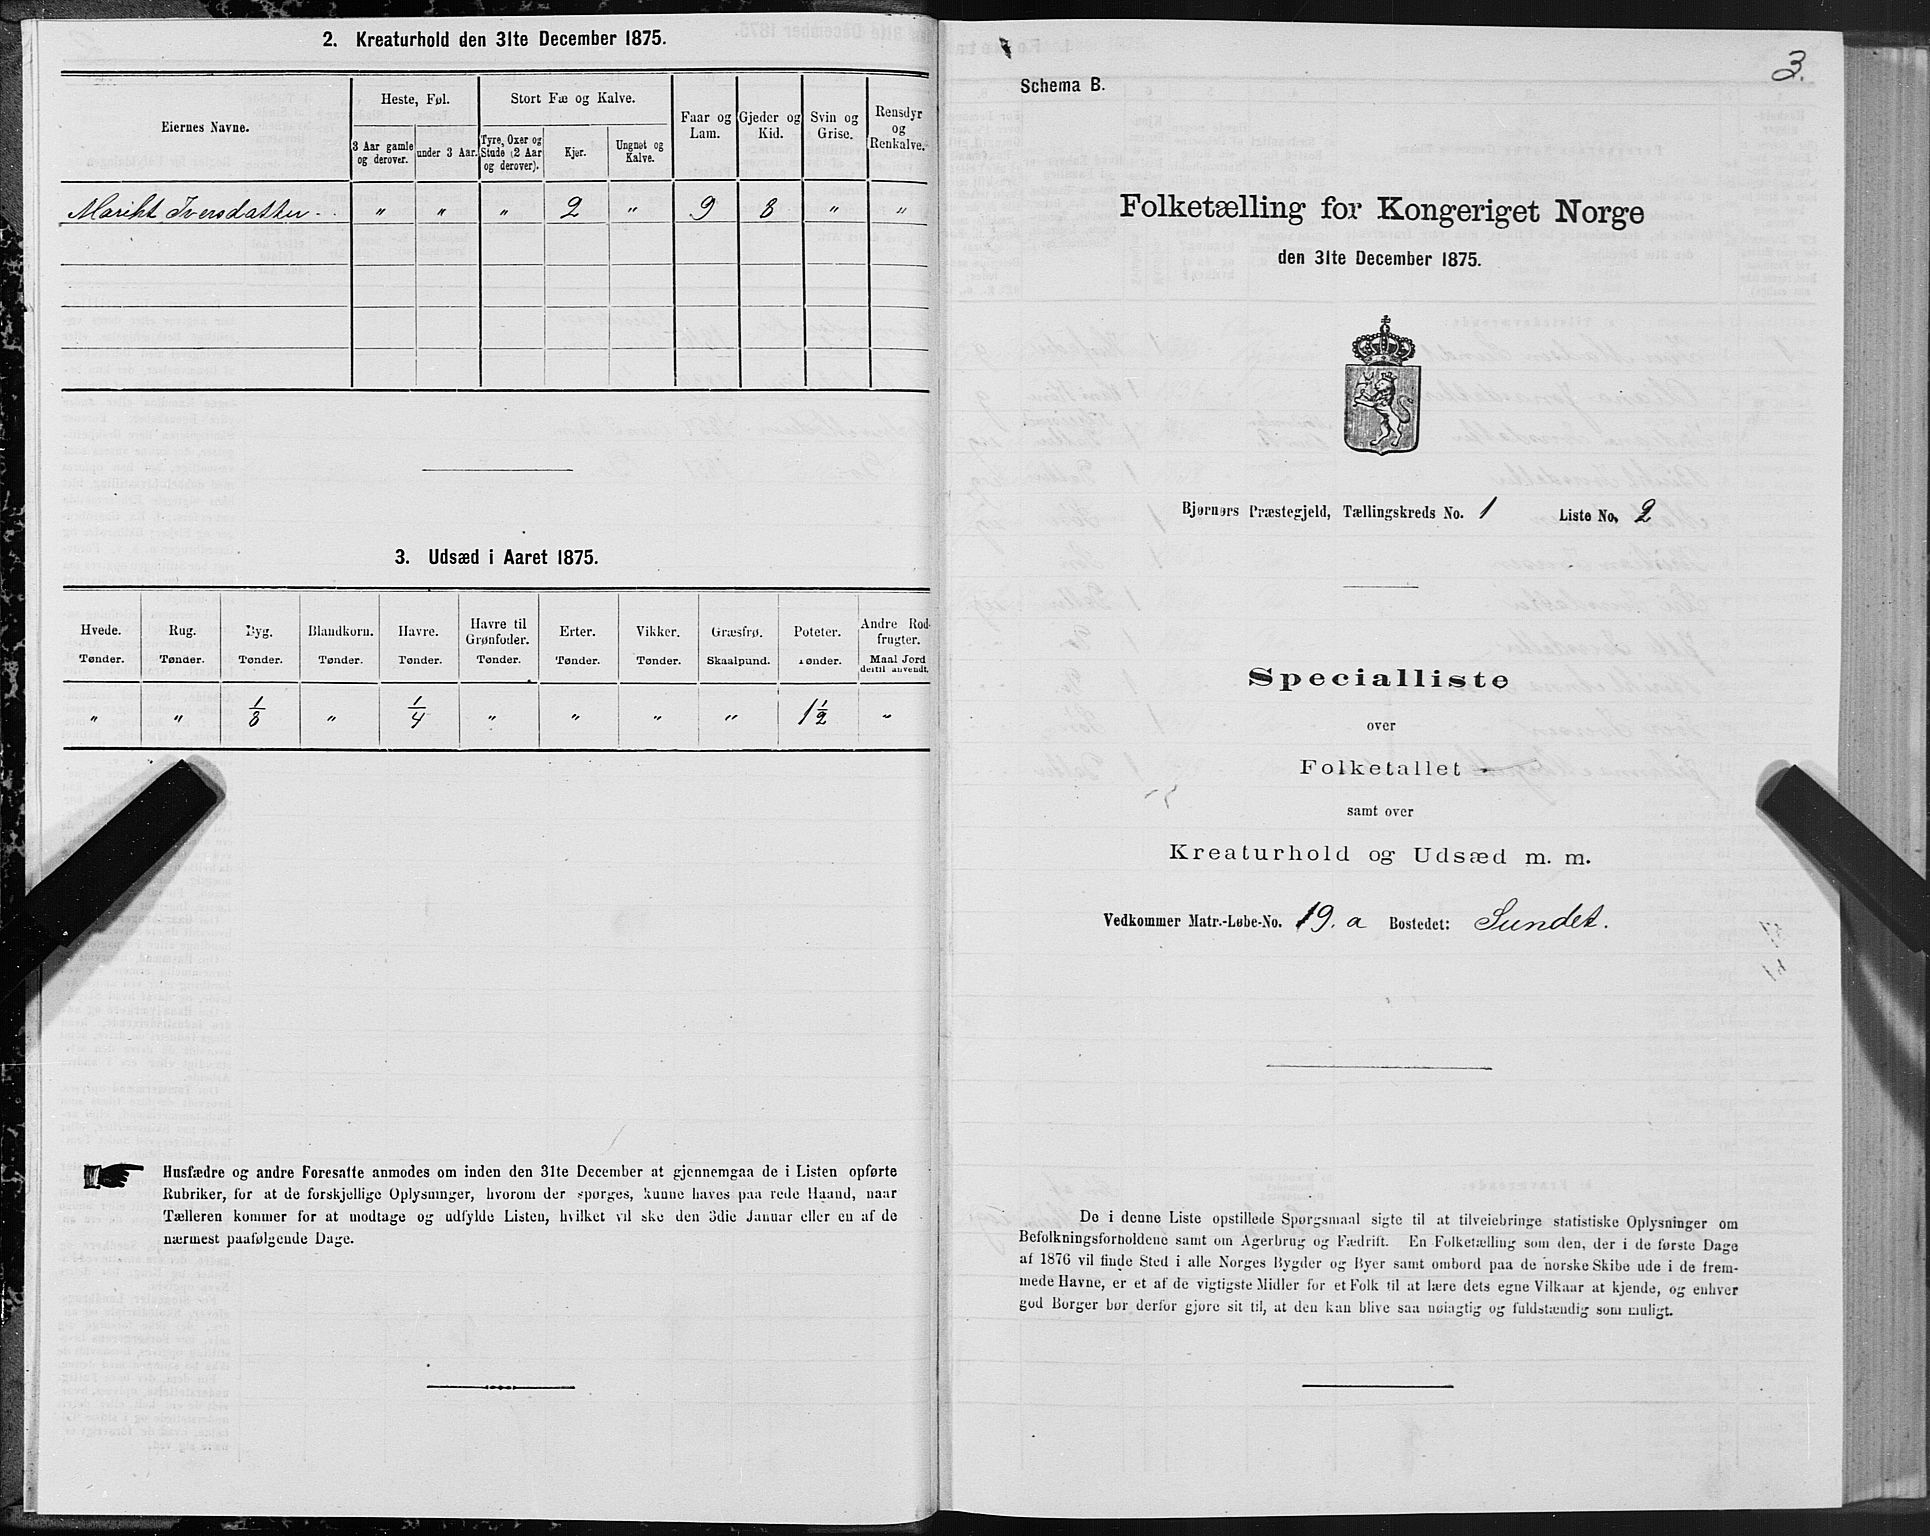 2. Kreaturhold den 31te December 1875.
Eiernes Navne.
Heste, Føl.
Stort Fæ og Kalve.
Faar og Lam.
Gjeder og Kid.
Svin og Grise.
Rensdyr og Renkalve.
3 Aar gamle og derover.
under 3 Aar.
Tyre, Oxer og Stude (2 Aar og derover).
Kjør.
Ungnøt og Kalve.
Marikt Iversdatter " " " 2 " 9 8 " "
3. Udsæd i Aaret 1875.
Hvede. Rug. Byg. Blandkorn. Havre. Havre til Grønfoder. Erter. Vikker. Græsfrø. Poteter. Andre Rodfrugter.
Tønder. Tønder. Tønder. Tønder. Tønder. Tønder. Tønder. Tønder. Skaalpund. Tønder. Maal Jord dertil anvendt.
" " 1/8 " 1/4 " " " " 1 1/2 "
Husfædre og andre Foresatte anmodes om inden den 31te December at gjennemgaa de i Listen opførte
Rubriker, for at de forskjellige Oplysninger, hvorom der spørges, kunne haves paa rede Haand, naar
Tælleren kommer for at modtage og udfylde Listen, hvilket vil ske den 3die Januar eller en af de
nærmest paafølgende Dage.
3.
Schema B.
Folketælling for Kongeriget Norge
den 31te December 1875.
Bjørnørs Præstegjeld, Tællingskreds No. 1 Liste No. 2
Specialliste
over
Folketallet
samt over
Kreaturhold og Udsæd m. m.
Vedkommer Matr.-Løbe-No. 19. a Bostedet: Sundet.
De i denne Liste opstillede Spørgsmaal sigte til at tilveiebringe statistiske Oplysninger om
Befolkningsforholdene samt om Agerbrug og Fædrift. En Folketælling som den, der i de første Dage
af 1876 vil finde Sted i alle Norges Bygder og Byer samt ombord paa de norske Skibe ude i de frem-
mede Havne, er et af de vigtigste Midler for et Folk til at lære dets egne Vilkaar at kjende, og enhver
god Borger bør derfor gjøre sit til, at den kan blive saa nøiagtig og fuldstændig som muligt.